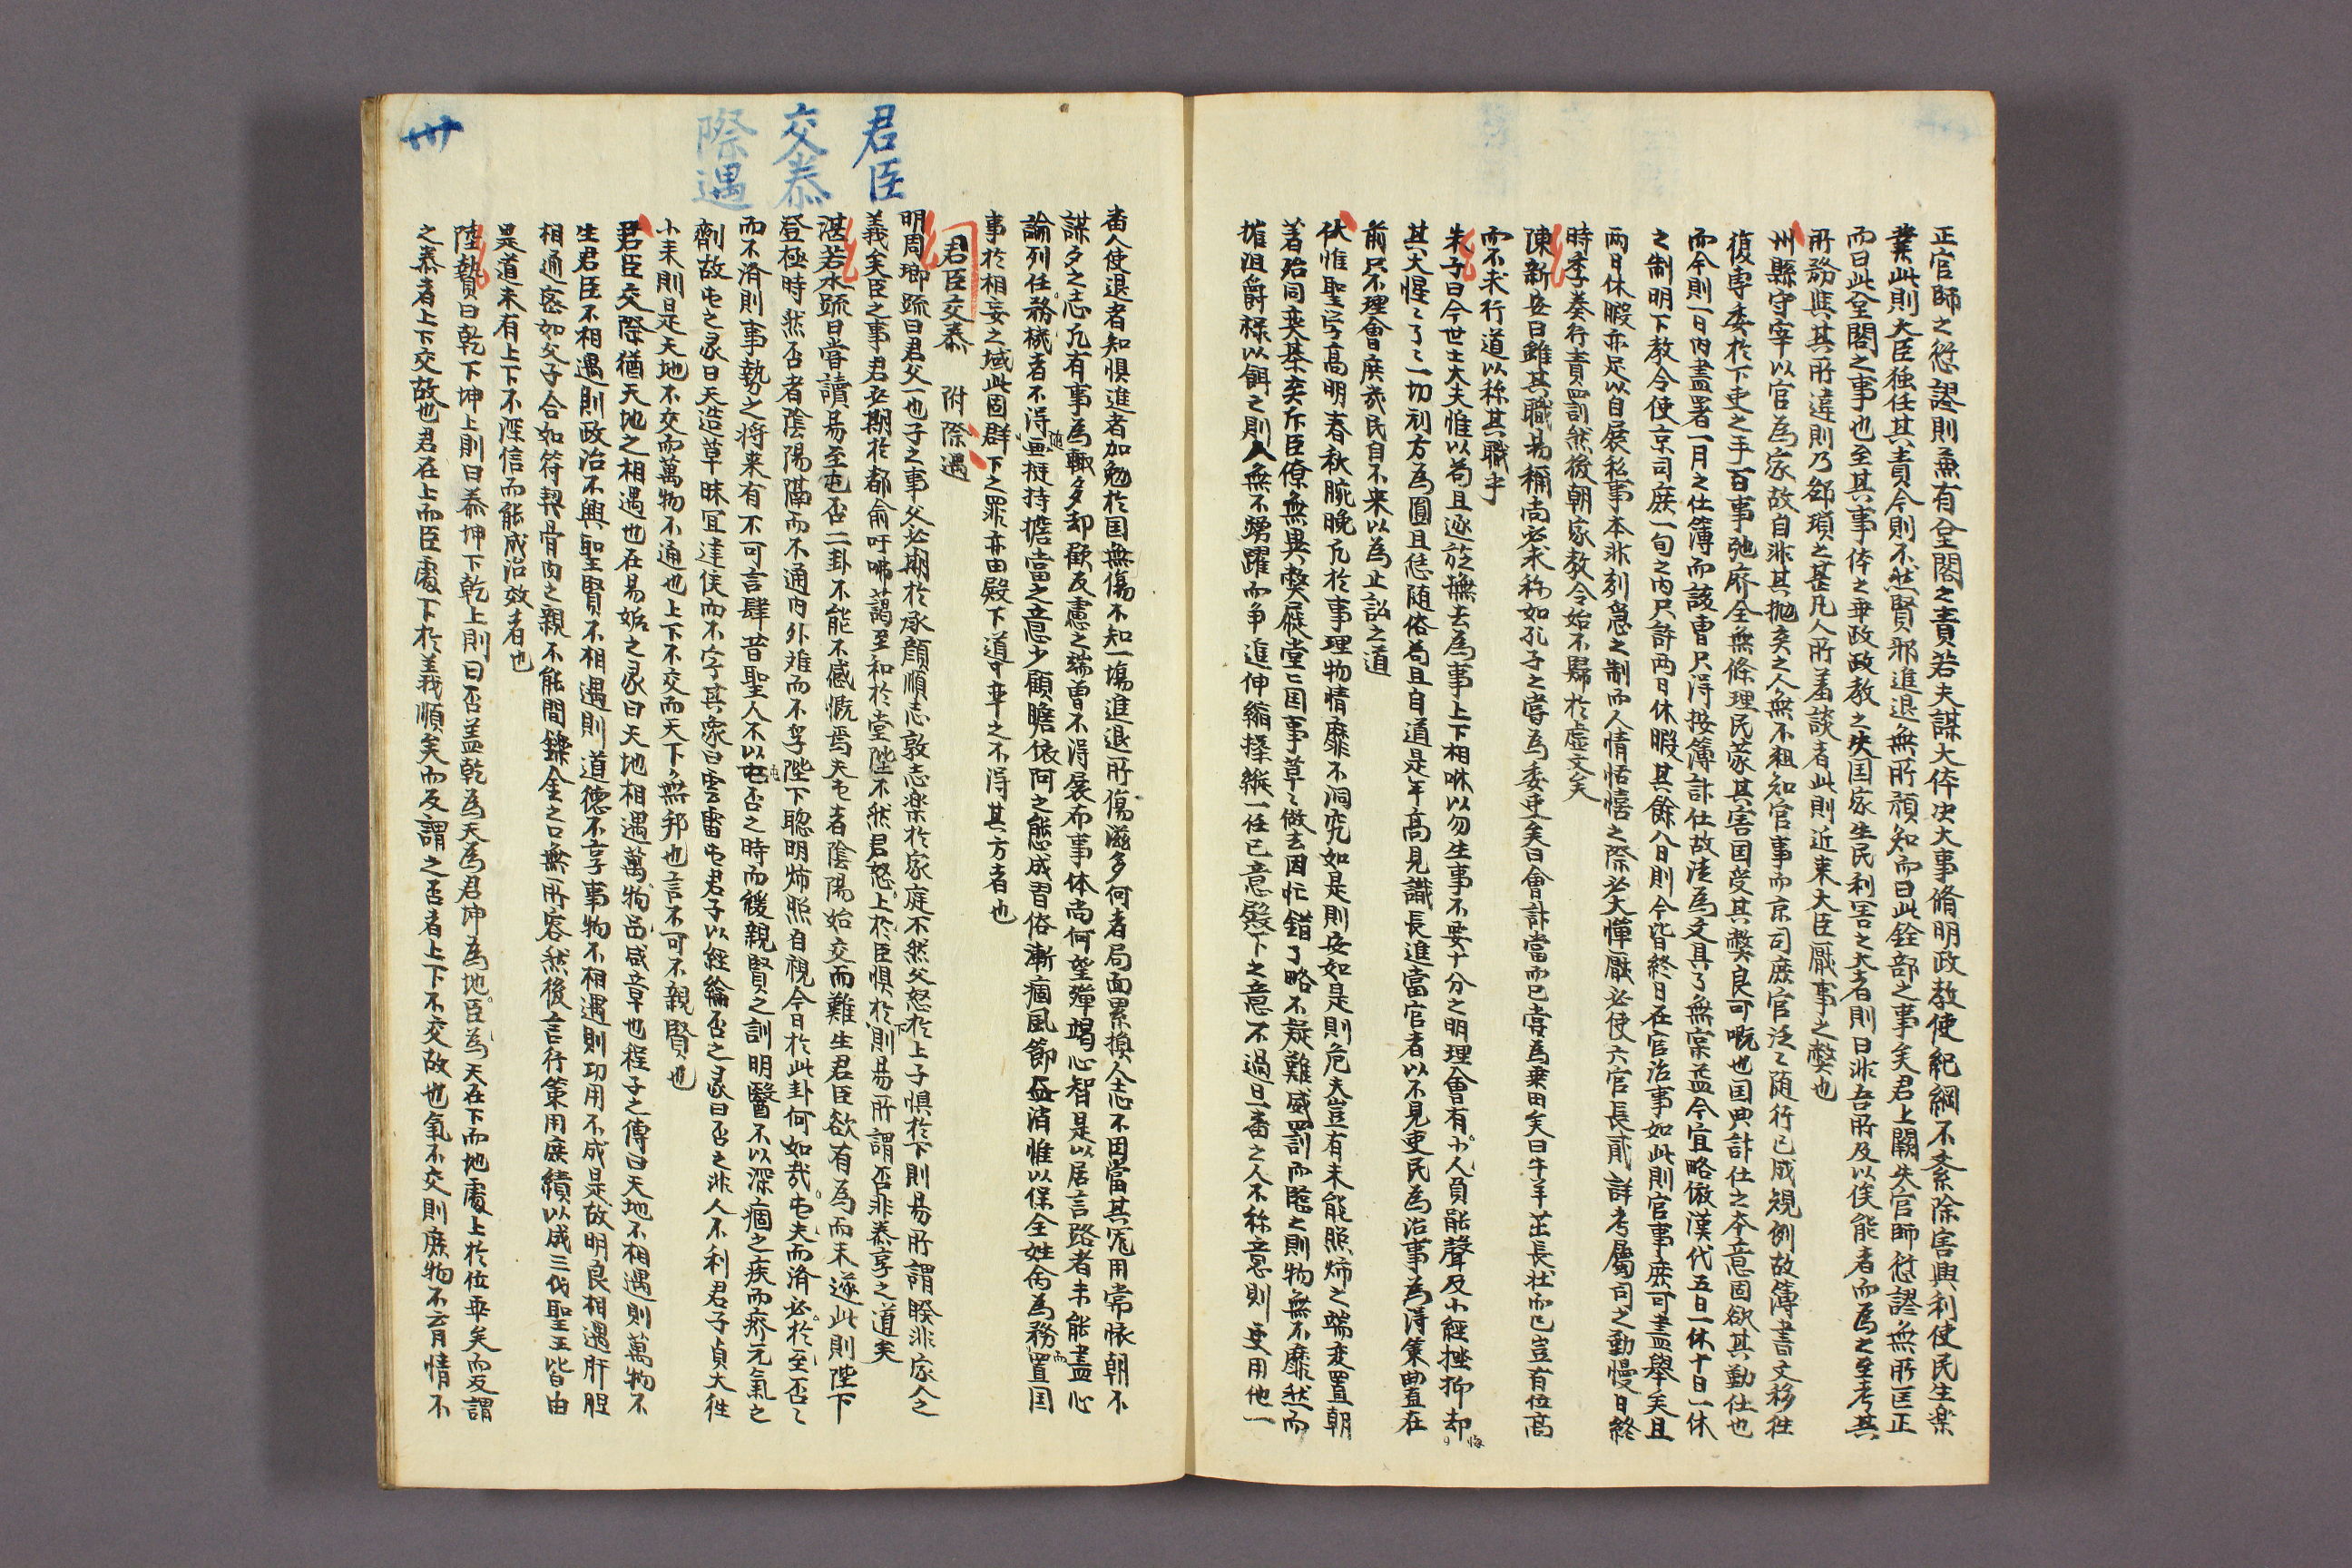 正官師之愆謬則無有坌閣之責若夫謀大体决大事脩明政教使紀綱不紊除害興利使民生楽
業此則大臣独任其責今則不然賢邪進退無所預知而曰此銓部之事矣君上闕失官師愆謬無所匡正
而曰此坌閣之事也至其事体之乖政政教之失国家生民利害之大者則曰非吾所及以俟能者而為之至考其
所務與其所違則乃郤瑣之甚凡人所羞談者此則近来大臣厭事之弊也
州縣守宰以官為家故自非其抛棄之人無不粗知官事而京司庶官泛〻随行已成規例故簿書文移往
復専委於下吏之手百事弛廃全無條理民蒙其害国受其弊良可嘅也国典計仕之本意固欲其勤仕也
而今則一日内盡署一月之仕簿而該曹只得按簿計仕故法為文具了無宲益今宜略倣漢代五日一休十日一休
之制明下教令使京司庶一旬之内只許两日休暇其餘八日則令皆終日在官治事如此則官事庶可盡舉矣且
两日休暇亦足以自展私事本非刻急之制而人情恬憘之際必大憚厭必使六官長貳詳考属司之勤慢日終
時季奏行責罰然後朝家教令始不歸於虚文矣
陳新安曰雖其職易稱尚必求称如孔子之嘗為委吏矣曰會計當而已嘗為乗田矣曰牛羊茁長状而已豈有位高
而不求行道以称其職乎
朱子曰今世士大夫惟以苟且逐旋撫去為事上下相咻以勿生事不要十分之明理會有小人負能聲及小経挫抑却悔
其大惺〻了〻一切刓方為圓且恁随俗苟且自道是年高見識長進當官者以不見吏民為治事為得策曲直在
前只不理會庶㡬民自不来以為止訟之道
伏惟聖学高明春秋腕晚凢於事理物情靡不洞究如是則安如是則危夫豈有未能照焫之端変置朝
著殆同奕基奕斥臣僚無異弊屣堂〻国事草〻做去因忙錯了略不疑難威罰而臨之則物無不靡然而
摧沮爵禄以餌之則人無不踴躍而争進伸縮操縱一任已意殿下之意不過曰一番之人不称意則更用他一
君臣
交泰
際遇
卅
番人使退者知惧進者加勉於国無傷不知一塲進退所傷滋多何者局面累換人志不固當其寃用常懐朝不
謀夕之志凢有事為輙多却歇反慮之端曽不得展布事体尚何望殫竭心智是以居言路者未能盡心
論列任務機者不得随画挺持擔當之意少顧瞻依阿之態成習俗漸痼風節益消惟以保全姓命為務而置国
事於相妄之域此固群下之罪亦由殿下道率之不得其方者也
君臣交泰 附際遇
明周瑯疏曰君父一也子之事父必期於承顔順志敦志楽於家庭不然父怒於上子惧於下則易所謂睽非家人之
義矣臣之事君必期於都俞吁咈藹至和於堂陛不然君怒上於臣惧於下則易所謂否非泰享之道矣
湛若水疏曰嘗讀易至屯否二卦不能不感慨焉夫屯者陰陽始交而難生君臣欲有為而未遂此則陛下
登極時然否者陰陽隔而不通内外难而不孚陛下聡明焫照自視今日於此卦何如哉屯夫而済必於至否〻
而不済則事勢之将来有不可言肆昔聖人不以屯否之時而緩親賢之訓明醫不以深痼之疾而廃元氣之
劑故屯之彖曰天造草昧冝建侯而不寧其象曰雲雷屯君子以経綸否之彖曰否之非人不利君子貞大徃
小来則是天地不交而萬物不通也上下不交而天下無邦也言不可不親賢也
君臣交際猶天地之相遇也在易姤之彖曰天地相遇萬物品咸章也程子之傳曰天地不相遇則萬物不
生君臣不相遇則政治不興聖賢不相遇則道徳不亨事物不相遇則功用不成是故明良相遇肝胆
相通密如父子合如符契骨肉之親不能間鑠金之口無所容然後言行策用庶績以成三代聖王皆由
是道未有上下不深信而能成治效者也
陸贄曰乾下坤上則曰泰坤下乾上則曰否盖乾為天為君坤為地臣為天在下而地處上於位乖矣而反謂
之泰者上下交故也君在上而臣處下於義順矣而反謂之否者上下不交故也氣不交則庶物不育情不